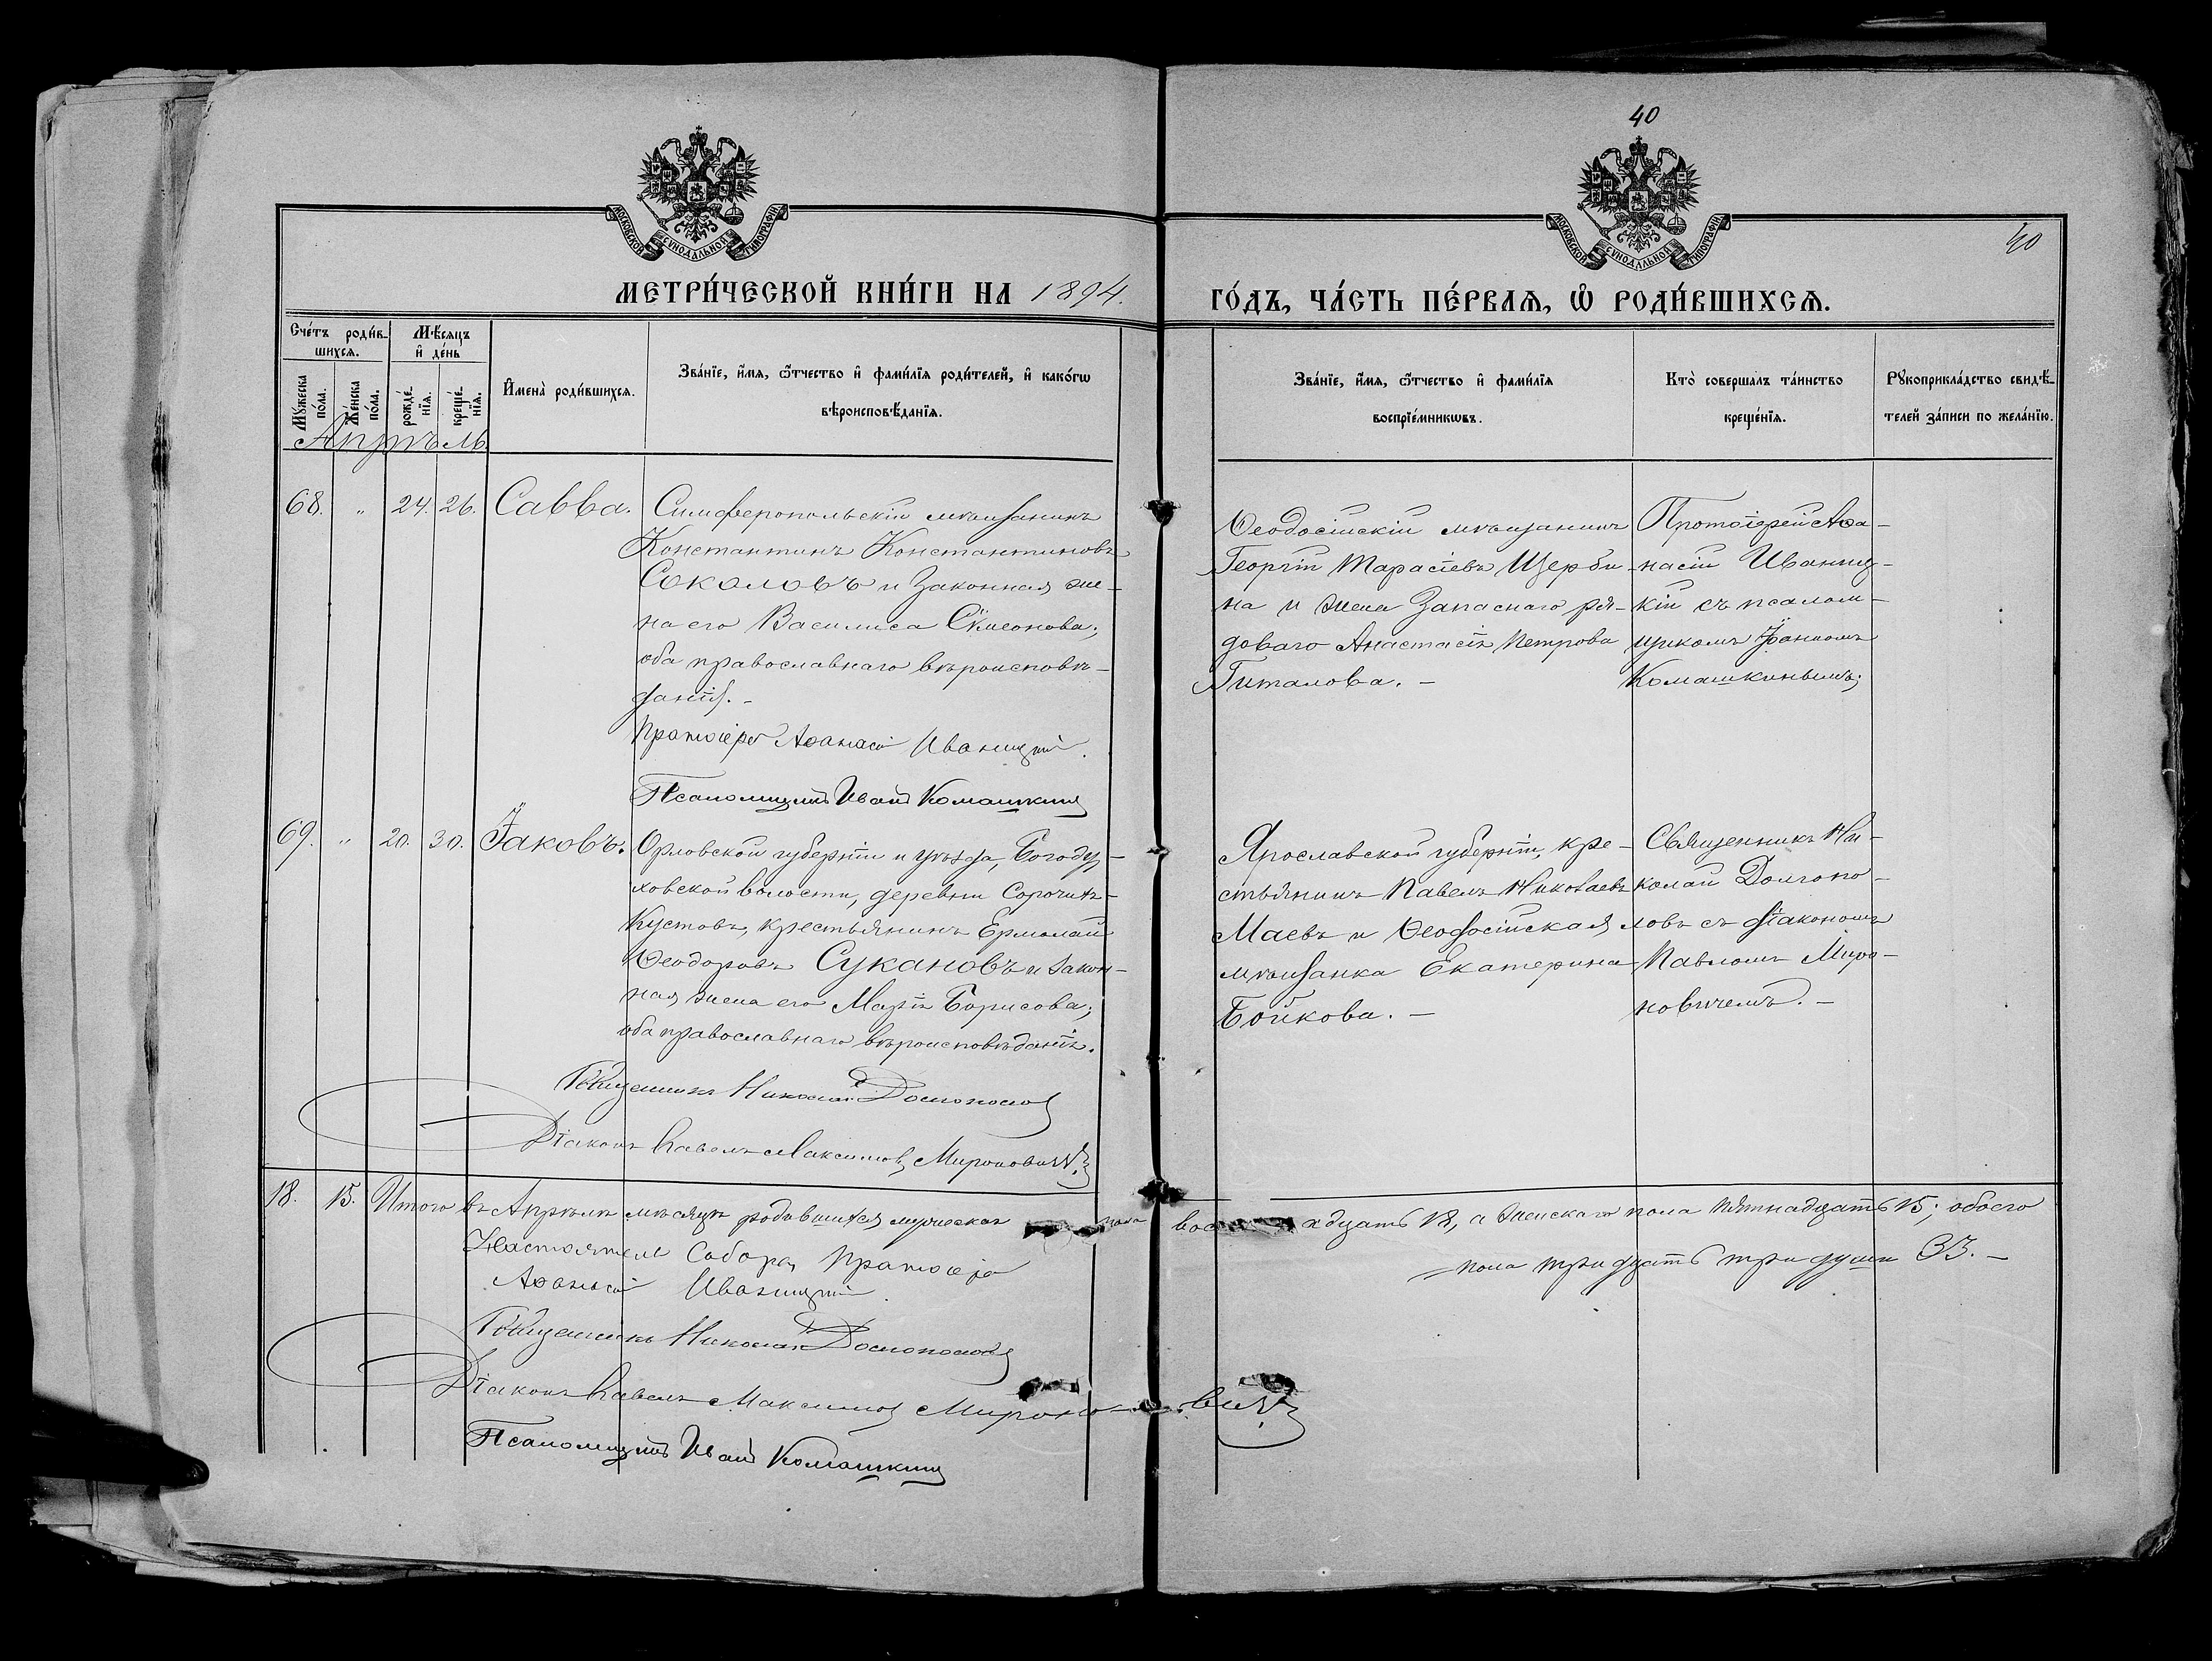 40
МОСКОВСКОЙ СУНОДАЛЬНОЙ ТИПОГРАФІИ
МОСКОВСКОЙ СУНОДАЛЬНОЙ ТИПОГРАФІИ
40
МЕТРИ́ЧЕСКОЙ КНИ́ГИ НА 1894.
ГО́ДЪ, ЧА́СТЬ ПЕ́РВАѦ, Ѡ҆ РОДИ́ВШИХСѦ.
Сче́тъ роди́в-
шихсѧ.
Мѣ́сѧцъ
и҆ де́нь
Мꙋ́жеска
по́ла.
Же́нска
по́ла.
рожде́-
нїѧ.
креще́-
нїѧ.
И҆мена̀ роди́вшихсѧ.
Зва́нїе, и҆́мѧ, ѻ҆́тчество и҆ фами́лїѧ роди́телей, и҆ како́гѡ
вѣроисповѣ́данїѧ.
Зва́нїе, и҆́мѧ, ѻ҆́тчество и҆ фами́лїѧ
воспрїе́мникѡвъ.
Кто̀ соверша́лъ та́инство
креще́нїѧ.
Рꙋкоприкла́дство свидѣ́-
телей за́писи по жела́нїю.
Апрѣль
68. „ 24. 26. Савва.
Симферопольскій мѣщанинъ
Константинъ Константиновъ
Соколовъ и законная же-
на его Василиса Сѵмеонова;
оба православнаго вѣроисповѣ-
данія. -
Протоіерей Аѳанасій Иваницкій
Псаломщикъ Иванъ Комашкинъ
Ѳеодосійскій мѣщанинъ
Георгій Тарасіевъ Щерби-
на и жена запаснаго ря-
доваго Анастасія Петрова
Гиталова. -
Протоіерей Аѳа-
насій Иваниц-
кій съ псалом-
щикомъ Іоанномъ
Комашкинымъ;
69. „ 20. 30. Іаковъ.
Орловской губерніи и уѣзда, Богоду-
ховской волости, деревни Сорочихъ-
Кустовъ, крестьянинъ Ермолай
Ѳеодоровъ Сукановъ и закон-
ная жена его Марія Борисова;
оба православнаго вѣроисповѣданія.
Священникъ Николай Долгополов
Діаконъ Павелъ Максимовъ Мироновичъ
Ярославской губерніи, кре-
стьянинъ Павелъ Николаевъ
Маевъ и Ѳеодосійская
мѣщанка Екатерина
Бойкова. -
Священникъ Ни-
колай Долгопо-
ловъ съ діакономъ
Павломъ Миро-
новичемъ. -
18. 15. Итого въ Апрѣлѣ мѣсяцѣ родившихся мужеска пола
вос адцать 18, а женскаго пола пятнадцать 15; обоего
пола тридцать три души 33. -
Настоятель Собора, Протоіерей
Аѳанасій Иваницкій
Священникъ Николай Долгополовъ
Діаконъ Павелъ Максимов Мироно-вичъ
Псаломщикъ Иванъ Комашкинъ